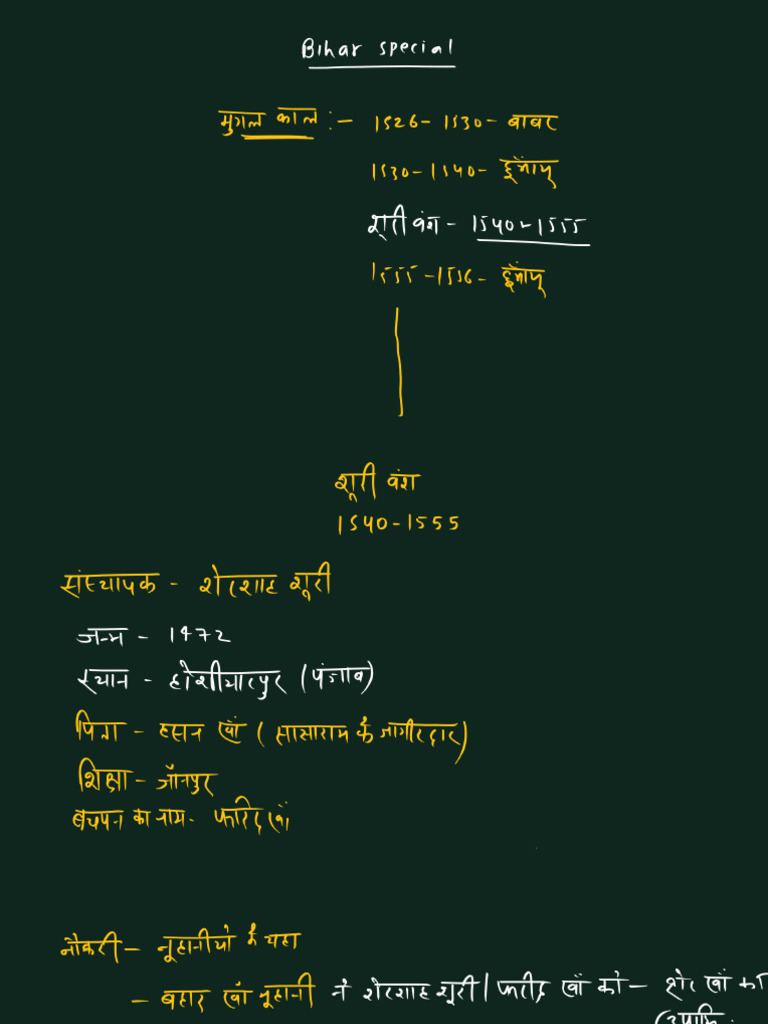 Bihar special
मुगल काल :- 1526-1530- बाबर
1530-1540- हुमाँयू
शूरी वंश - 1540-1555
1555-1556- हुमाँयू
शूरी वंश
1540-1555
संस्थापक - शेरशाह शूरी
जन्म - 1472
स्थान - होशीयारपुर (पंजाब)
पिता - हसन खाँ (सासाराम के जागीरदार)
शिक्षा - जौनपुर
बचपन का नाम - फरिद खाँ
नौकरी - नूहानीयो के यहा
- बहार खाँ नूहानी ने शेरशाह शूरी / फरीद खाँ को - शेर खाँ की
(उपाधि